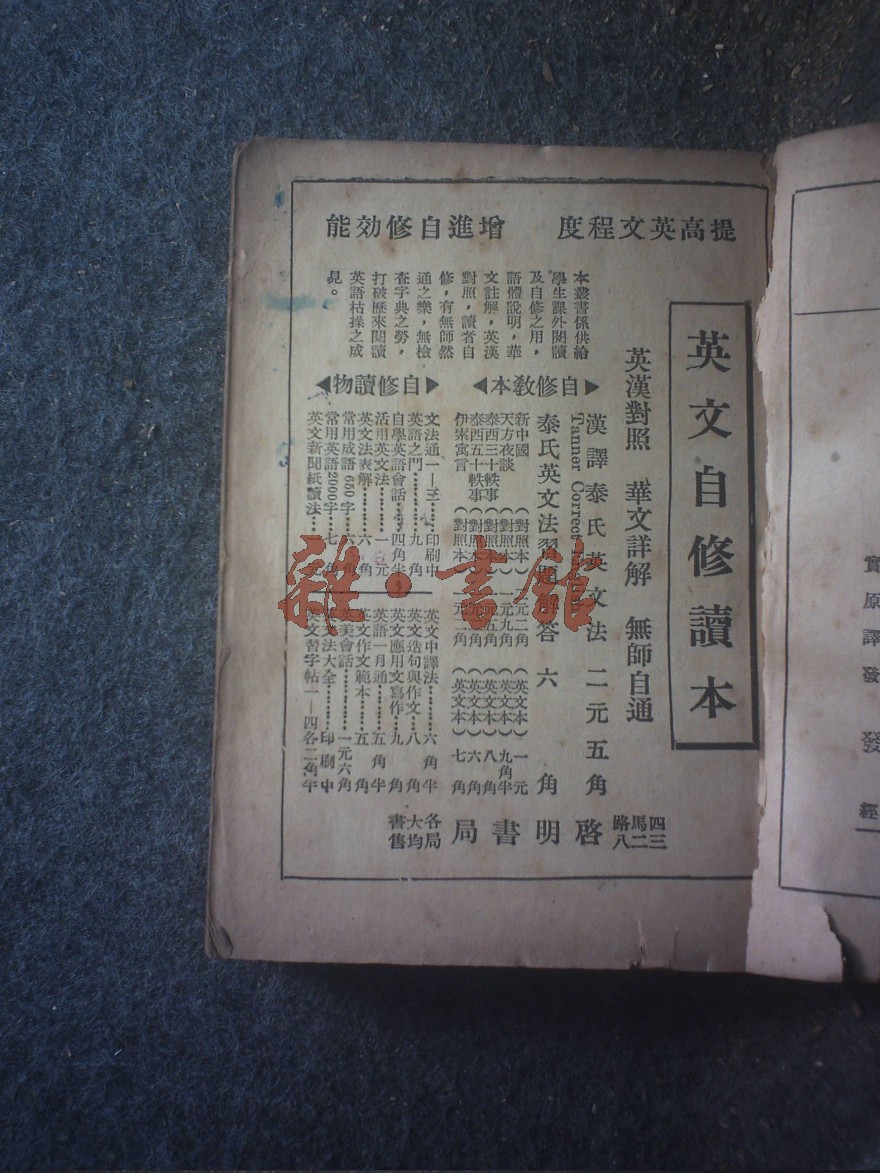 提高英文程度　增進自修効能
英文自修讀本
英漢對照　華文詳解　無師自通
漢譯泰氏英文法　二元五角
Tanner Correct
泰氏英文法習題解答　六角
本叢書係供給
學生課外閱讀
及自修之用，
語體說明，華
文註解，英漢
對照，讀者自
修，有無師然
通之樂，無檢
查字典之勞，
打破歷來閱讀
英語枯操之成
見。
自修教本
新中國（對照本）一元二角（英文本）一元
天方夜談（對照本）一元九角（英文本）九角半
泰西三十軼事（對照本）元五角（英文本）八角
泰西五十軼事（對照本）一元二角（英文本）六角
伊索寓言（對照本）一元二角（英文本）七角
自修讀物
文法通一—三……印刷中
英語之門……九角
自學英語會話……四角半
活用英文法……一元
英文法表解……六角
常用成語650字……六角
常用英語2000字……七角
英文新聞紙讀法……元
英文中譯法……六角半
英文造句與作文……八角
英文應用文寫作……九角
英語一月通……五角半
英文作文範本……五角
英美會話……一元六角
文法大全……印刷中
英文習字帖一—四各二角半
四馬路三二八
啓明書局
各大書局均售
實
原
譯
發
發
經
雜·書館